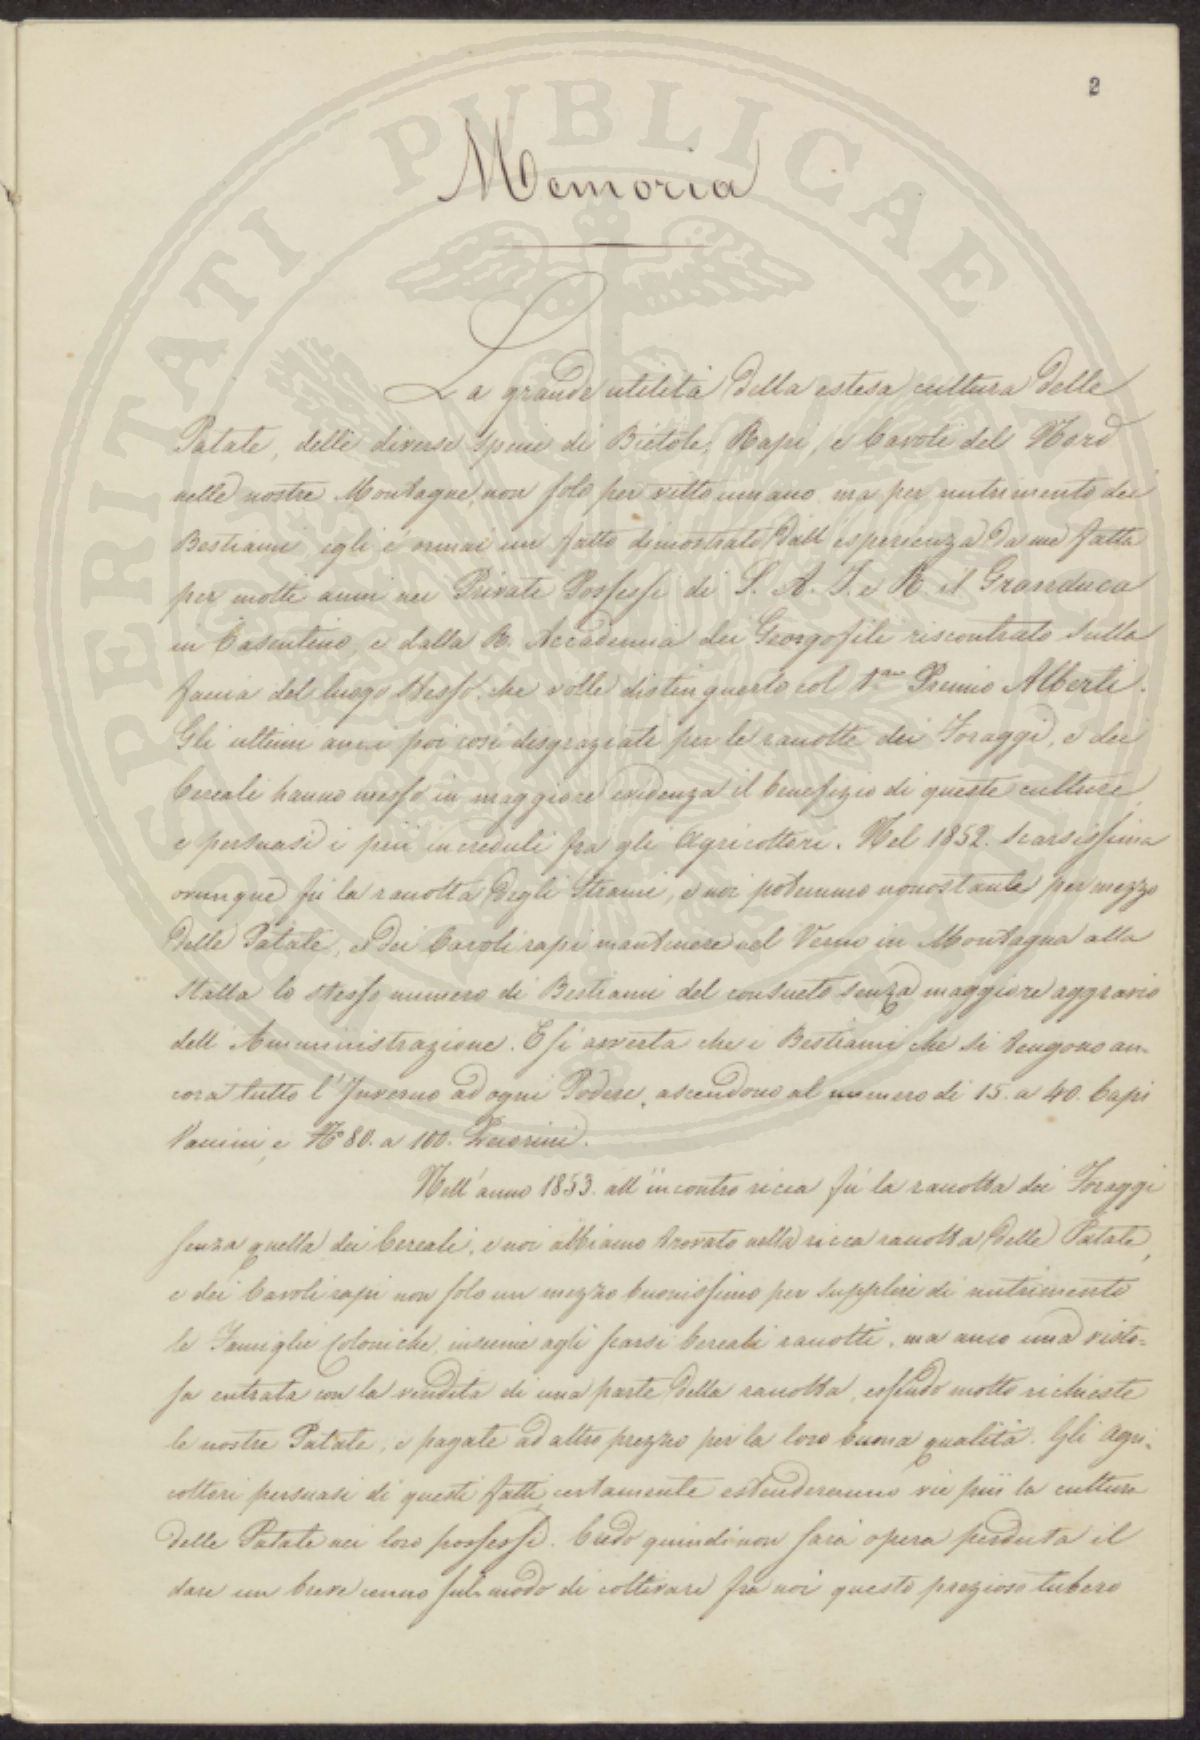 2
Memoria
La grande utilità della estesa cultura delle
Patate, delle diverse specie di Bietole, Rapi, e Cavoli del Nord
nelle nostre Montagne, non solo per vitto umano ma per nutrimento dei
Bestiami egli è ormai un fatto dimostrato dall'esperienza da me fatta
per molti anni nei Privati Possessi di S. A. I. e R. il Granduca
in Casentino, e dalla R. Accademia dei Georgofili riscontrato sulla
faccia del luogo stesso, che volle distinguerlo col 1.mo Premio Alberti.
Gli ultimi anni poi così disgraziati per le raccolte dei Foraggi, e dei
Cereali hanno messo in maggiore evidenza il benefizio di queste culture
e persuasi i più increduli fra gli Agricoltori. Nel 1852. scarsissima
ovunque fù la raccolta degli Strami, e noi potemmo nonostante per mezzo
delle Patate, e dei Cavoli rapi mantenere nel Verno in Montagna alla
stalla lo stesso numero di Bestiami del consueto senza maggiore aggravio
dell'Amministrazione. E si avverta che i Bestiami che si tengono an-
cora tutto l'Inverno ad ogni Podere, ascendono al numero di 15. a 40. Capi
Vaccini, e N° 80. a 100. Pecorini.
Nell'anno 1853. all'incontro ricca fù la raccolta dei Foraggi
senza quella dei Cereali, e noi abbiamo trovato nella ricca raccolta delle Patate,
e dei Cavoli rapi non solo un mezzo buonissimo per supplire di nutrimento
le Famiglie Coloniche, insieme agli scarsi Cereali raccolti, ma anco una visto-
sa entrata con la vendita di una parte della raccolta, essendo molto richieste
le nostre Patate, e pagate ad alto prezzo per la loro buona qualità. Gli Agri-
coltori persuasi di questi fatti certamente estenderanno vie più la cultura
delle Patate nei loro possessi. Credo quindi non sarà opera perduta il
dare un breve cenno sul modo di coltivare fra noi questo prezioso tubero
PROSPERITATI PUBLICAE